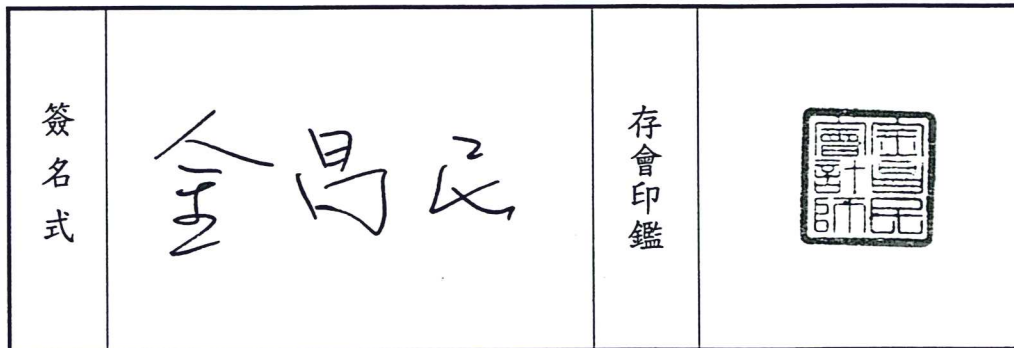 簽名式
金昌民
存會印鑑
金昌民
會計師